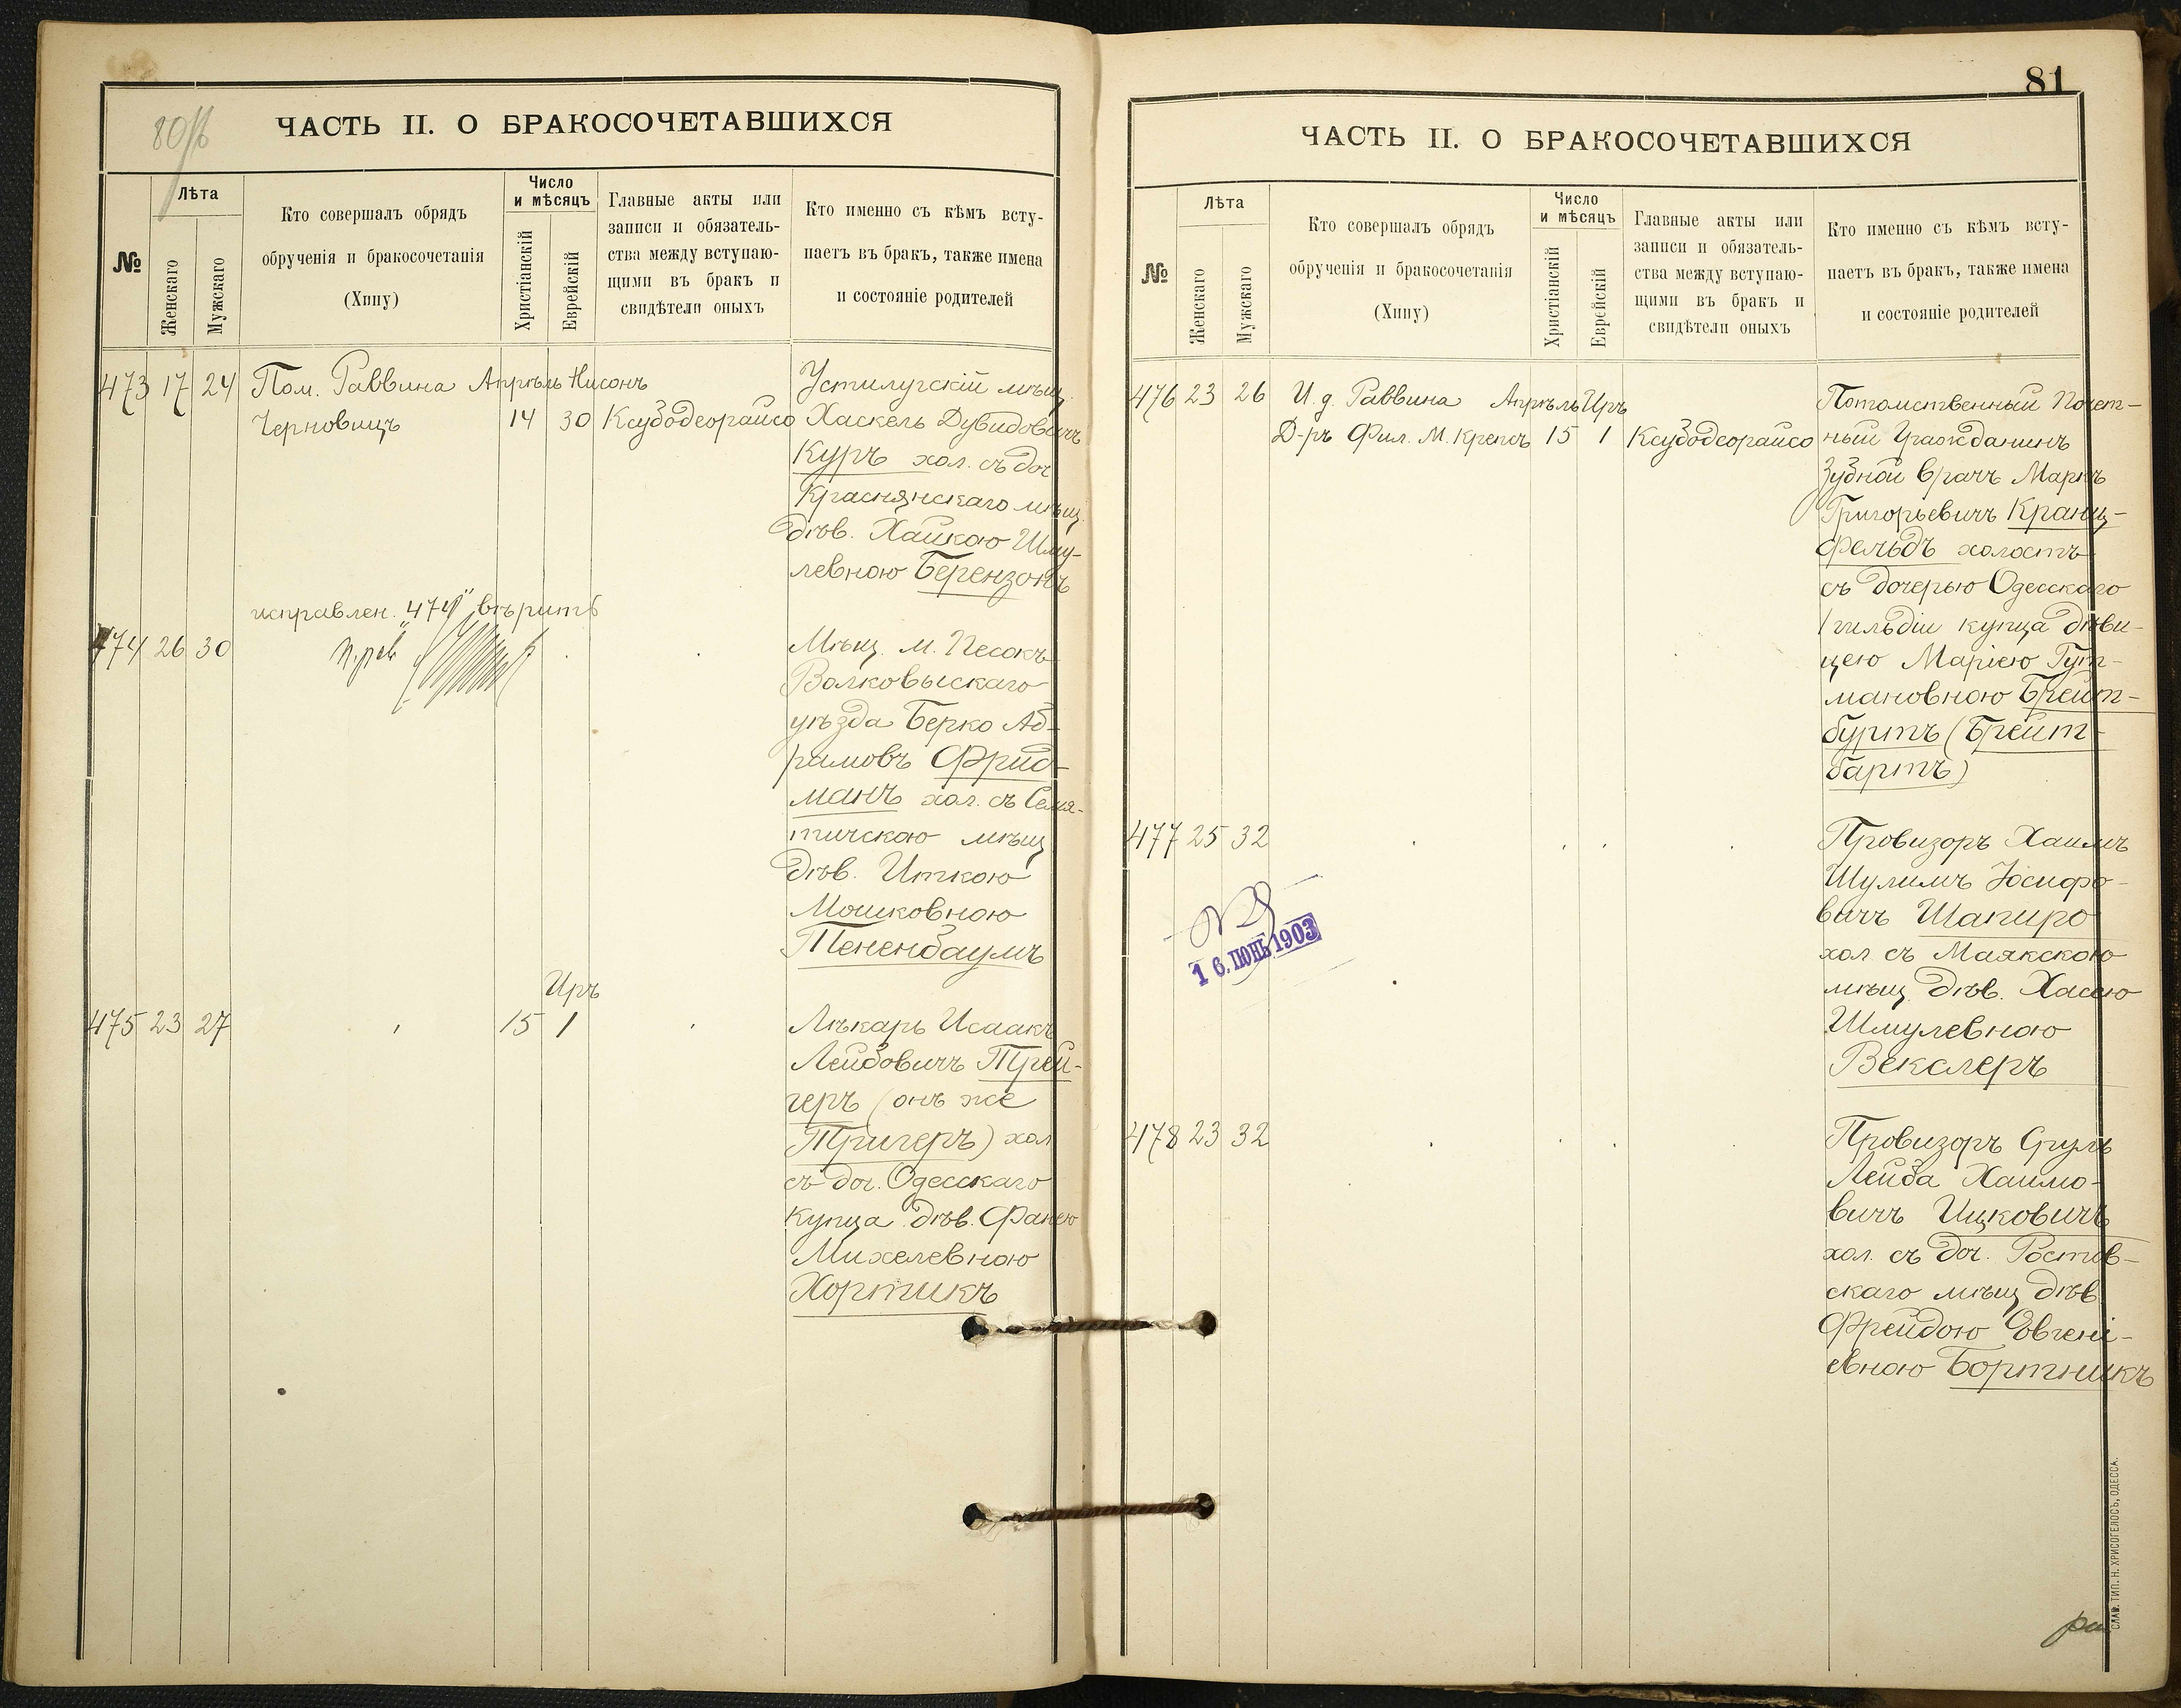 80/б
ЧАСТЬ II. О БРАКОСОЧЕТАВШИХСЯ
№
Лѣта
Женскаго
Мужскаго
Кто совершалъ обрядъ
обрученія и бракосочетанія
(Хипу)
Число
и мѣсяцъ
Христіанскій
Еврейскій
Главные акты или
записи и обязатель-
ства между вступаю-
щими въ бракъ и
свидѣтели оныхъ
Кто именно съ кѣмъ всту-
паетъ въ бракъ, также имена
и состояніе родителей
473 17 24 Пом. Раввина Апрѣль Нисонъ Устилугскій мѣщ.
Черновицъ 14 30 Ксубодеорайсо Хаскель Дувидовичъ
Куръ хол. съ доч
Краснянскаго мѣщ.
дѣв. Хайкою Шму-
левною Берензонъ
исправлен. "474" вѣрить
474 26 30 Мѣщ. м. Песокъ
Волковыскаго
уѣзда Берко Аб-
рамовъ Фрид-
манъ хол. съ Семя-
тичскою мѣщ
дѣв. Иткою
Мошковною
Тененбаумъ
Иръ
475 23 27 15 1 Лѣкарь Исаакъ
Лейбовичъ Трей-
геръ (онъ же
Тригеръ) хол
съ доч. Одесскаго
купца дѣв. Фанею
Михелевною
Хортикъ
81
ЧАСТЬ II. О БРАКОСОЧЕТАВШИХСЯ
№
Лѣта
Женскаго
Мужскаго
Кто совершалъ обрядъ
обрученія и бракосочетанія
(Хипу)
Число
и мѣсяцъ
Христіанскій
Еврейскій
Главные акты или
записи и обязатель-
ства между вступаю-
щими въ бракъ и
свидѣтели оныхъ
Кто именно съ кѣмъ всту-
паетъ въ бракъ, также имена
и состояніе родителей
476 23 26 И. д. Раввина Апрѣль Иръ Потомственный Почет-
Д-ръ Фил. М. Крепсъ 15 1 Ксубодеорайсо ный Гражданинъ
Зубной врачъ Маркъ
Григорьевичъ Кранц-
фельдъ холостъ
съ дочерью Одесскаго
1 гильдіи купца дѣви-
цею Маріею Гут-
мановною Брейт-
буртъ (Брейт-
бартъ)
477 25 32 Провизоръ Хаимъ
Шулимъ Іосифо-
вичъ Шапиро
хол съ Маякскою
мѣщ. дѣв. Хасею
Шмулевною
Векслеръ
1 6. ІЮНЬ 1903
478 23 32 Провизоръ Сруль
Лейба Хаимо-
вичъ Ицковичъ
хол. съ доч. Ростов-
скаго мѣщ дѣв
Фрейдою Евгені-
евною Бортникъ
СЛАВ. ТИП. Н. ХРИСОГЕЛОСЪ, ОДЕССА.